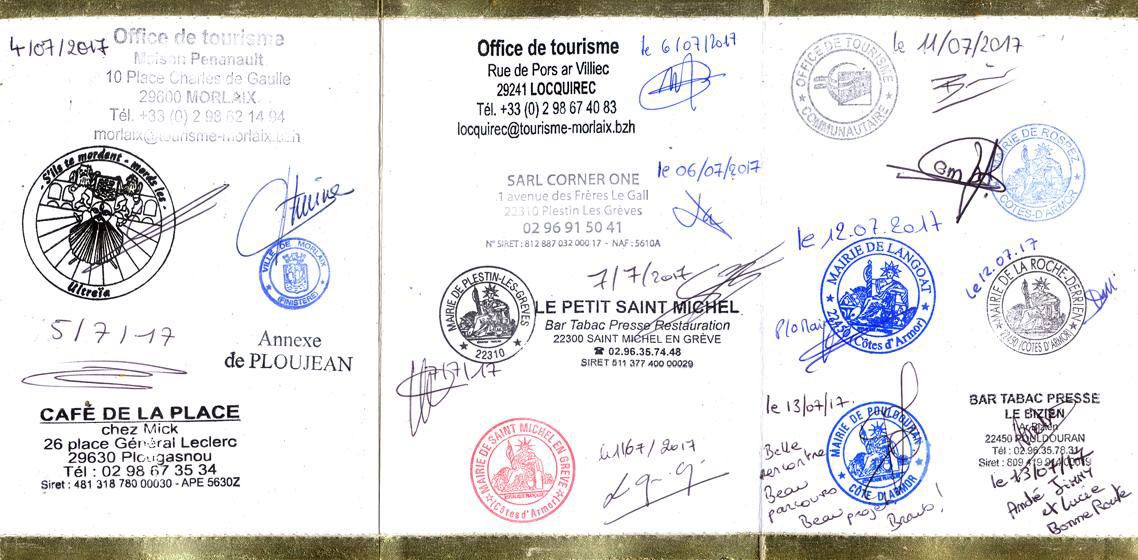 4/07/2017
Office de tourisme
Maison Penanault
10 Place Charles de Gaulle
29600 MORLAIX
Tél. +33 (0) 2 98 62 14 94
morlaix@tourisme-morlaix.bzh
- S'ils te mordent - mords les -
Ultreïa
VILLE DE MORLAIX
(FINISTERE)
5/7/17
Annexe
de PLOUJEAN
CAFÉ DE LA PLACE
chez Mick
26 place Général Leclerc
29630 Plougasnou
Tél : 02 98 67 35 34
Siret : 481 318 780 00030 - APE 5630Z
Office de tourisme
le 6/07/2017
Rue de Pors ar Villiec
29241 LOCQUIREC
Tél. +33 (0) 2 98 67 40 83
locquirec@tourisme-morlaix.bzh
le 06/07/2017
SARL CORNER ONE
1 avenue des Frères Le Gall
22310 Plestin Les Grèves
02 96 91 50 41
N° SIRET : 812 887 032 000 17 - NAF : 5610A
7/7/2017
MAIRIE DE PLESTIN-LES-GRÈVES
22310
LE PETIT SAINT MICHEL
Bar Tabac Presse Restauration
22300 SAINT MICHEL EN GRÈVE
☎ 02.96.35.74.48
SIRET 511 377 400 00029
7/7/17
MAIRIE DE SAINT MICHEL EN GRÈVE
(Côtes d'Armor)
OFFICE DE TOURISME
COMMUNAUTAIRE
le 11/07/2017
MAIRIE DE ROSPEZ
CÔTES-D'ARMOR
le 12.07.2017
MAIRIE DE LANGOAT
22450 (Côtes d'Armor)
le 12.07.17
MAIRIE DE LA ROCHE-DERRIEN
22450 (CÔTES D'ARMOR)
le 13/07/17.
MAIRIE DE POULDOURAN
CÔTE-D'ARMOR
Belle
rencontre
Beau
parcours
Beau projet, Bravo !
BAR TABAC PRESSE
LE BIZIEN
22450 POULDOURAN
Tél : 02.96.35.78.31
le 13/07/17
André
et Lucie
Bonne Route